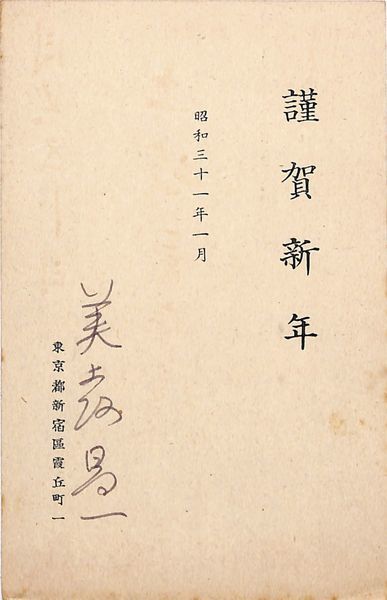 謹賀新年
昭和三十一年一月
美土路昌一
東京都新宿區霞丘町一